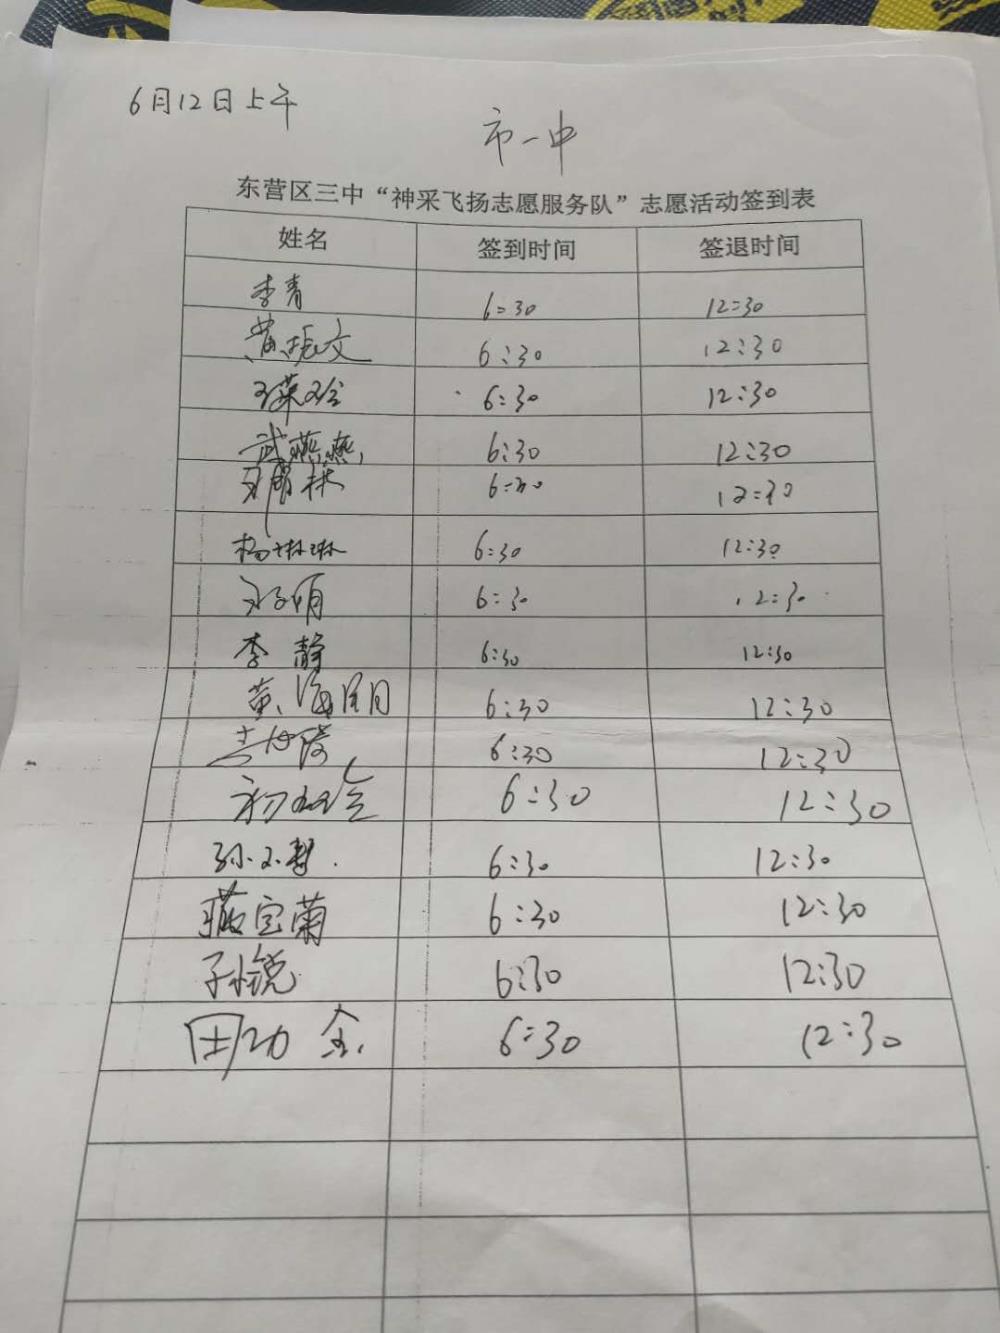 6月12日上午
市一中
东营区三中“神采飞扬志愿服务队”志愿活动签到表
姓名 签到时间 签退时间
李青 6:30 12:30
黄振文 6:30 12:30
6:30 12:30
武燕燕 6:30 12:30
6:30 12:30
杨琳琳 6:30 12:30
6:30 12:30
李静 6:30 12:30
黄海月 6:30 12:30
6:30 12:30
6:30 12:30
孙 6:30 12:30
宝菊 6:30 12:30
孙锐 6:30 12:30
田功金 6:30 12:30